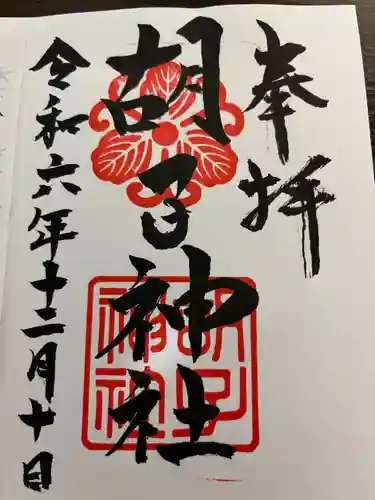 奉拝
胡子神社
胡子
神社
令和六年十二月十日